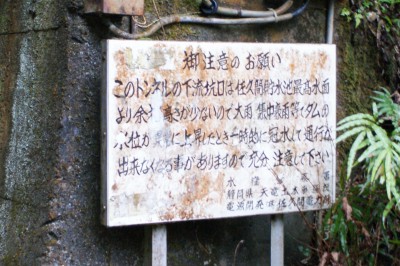 御注意のお願い
このトンネルの下流坑口は佐久間貯水池最高水面
より余り高さがないので大雨 集中豪雨等でダムの
水位が に上昇したとき一時的に冠水して通行が
出来なくなる事がありますので充分 注意して下さい
水窪 署
静岡県 天竜土木事務所
電源開発 佐久間電力所